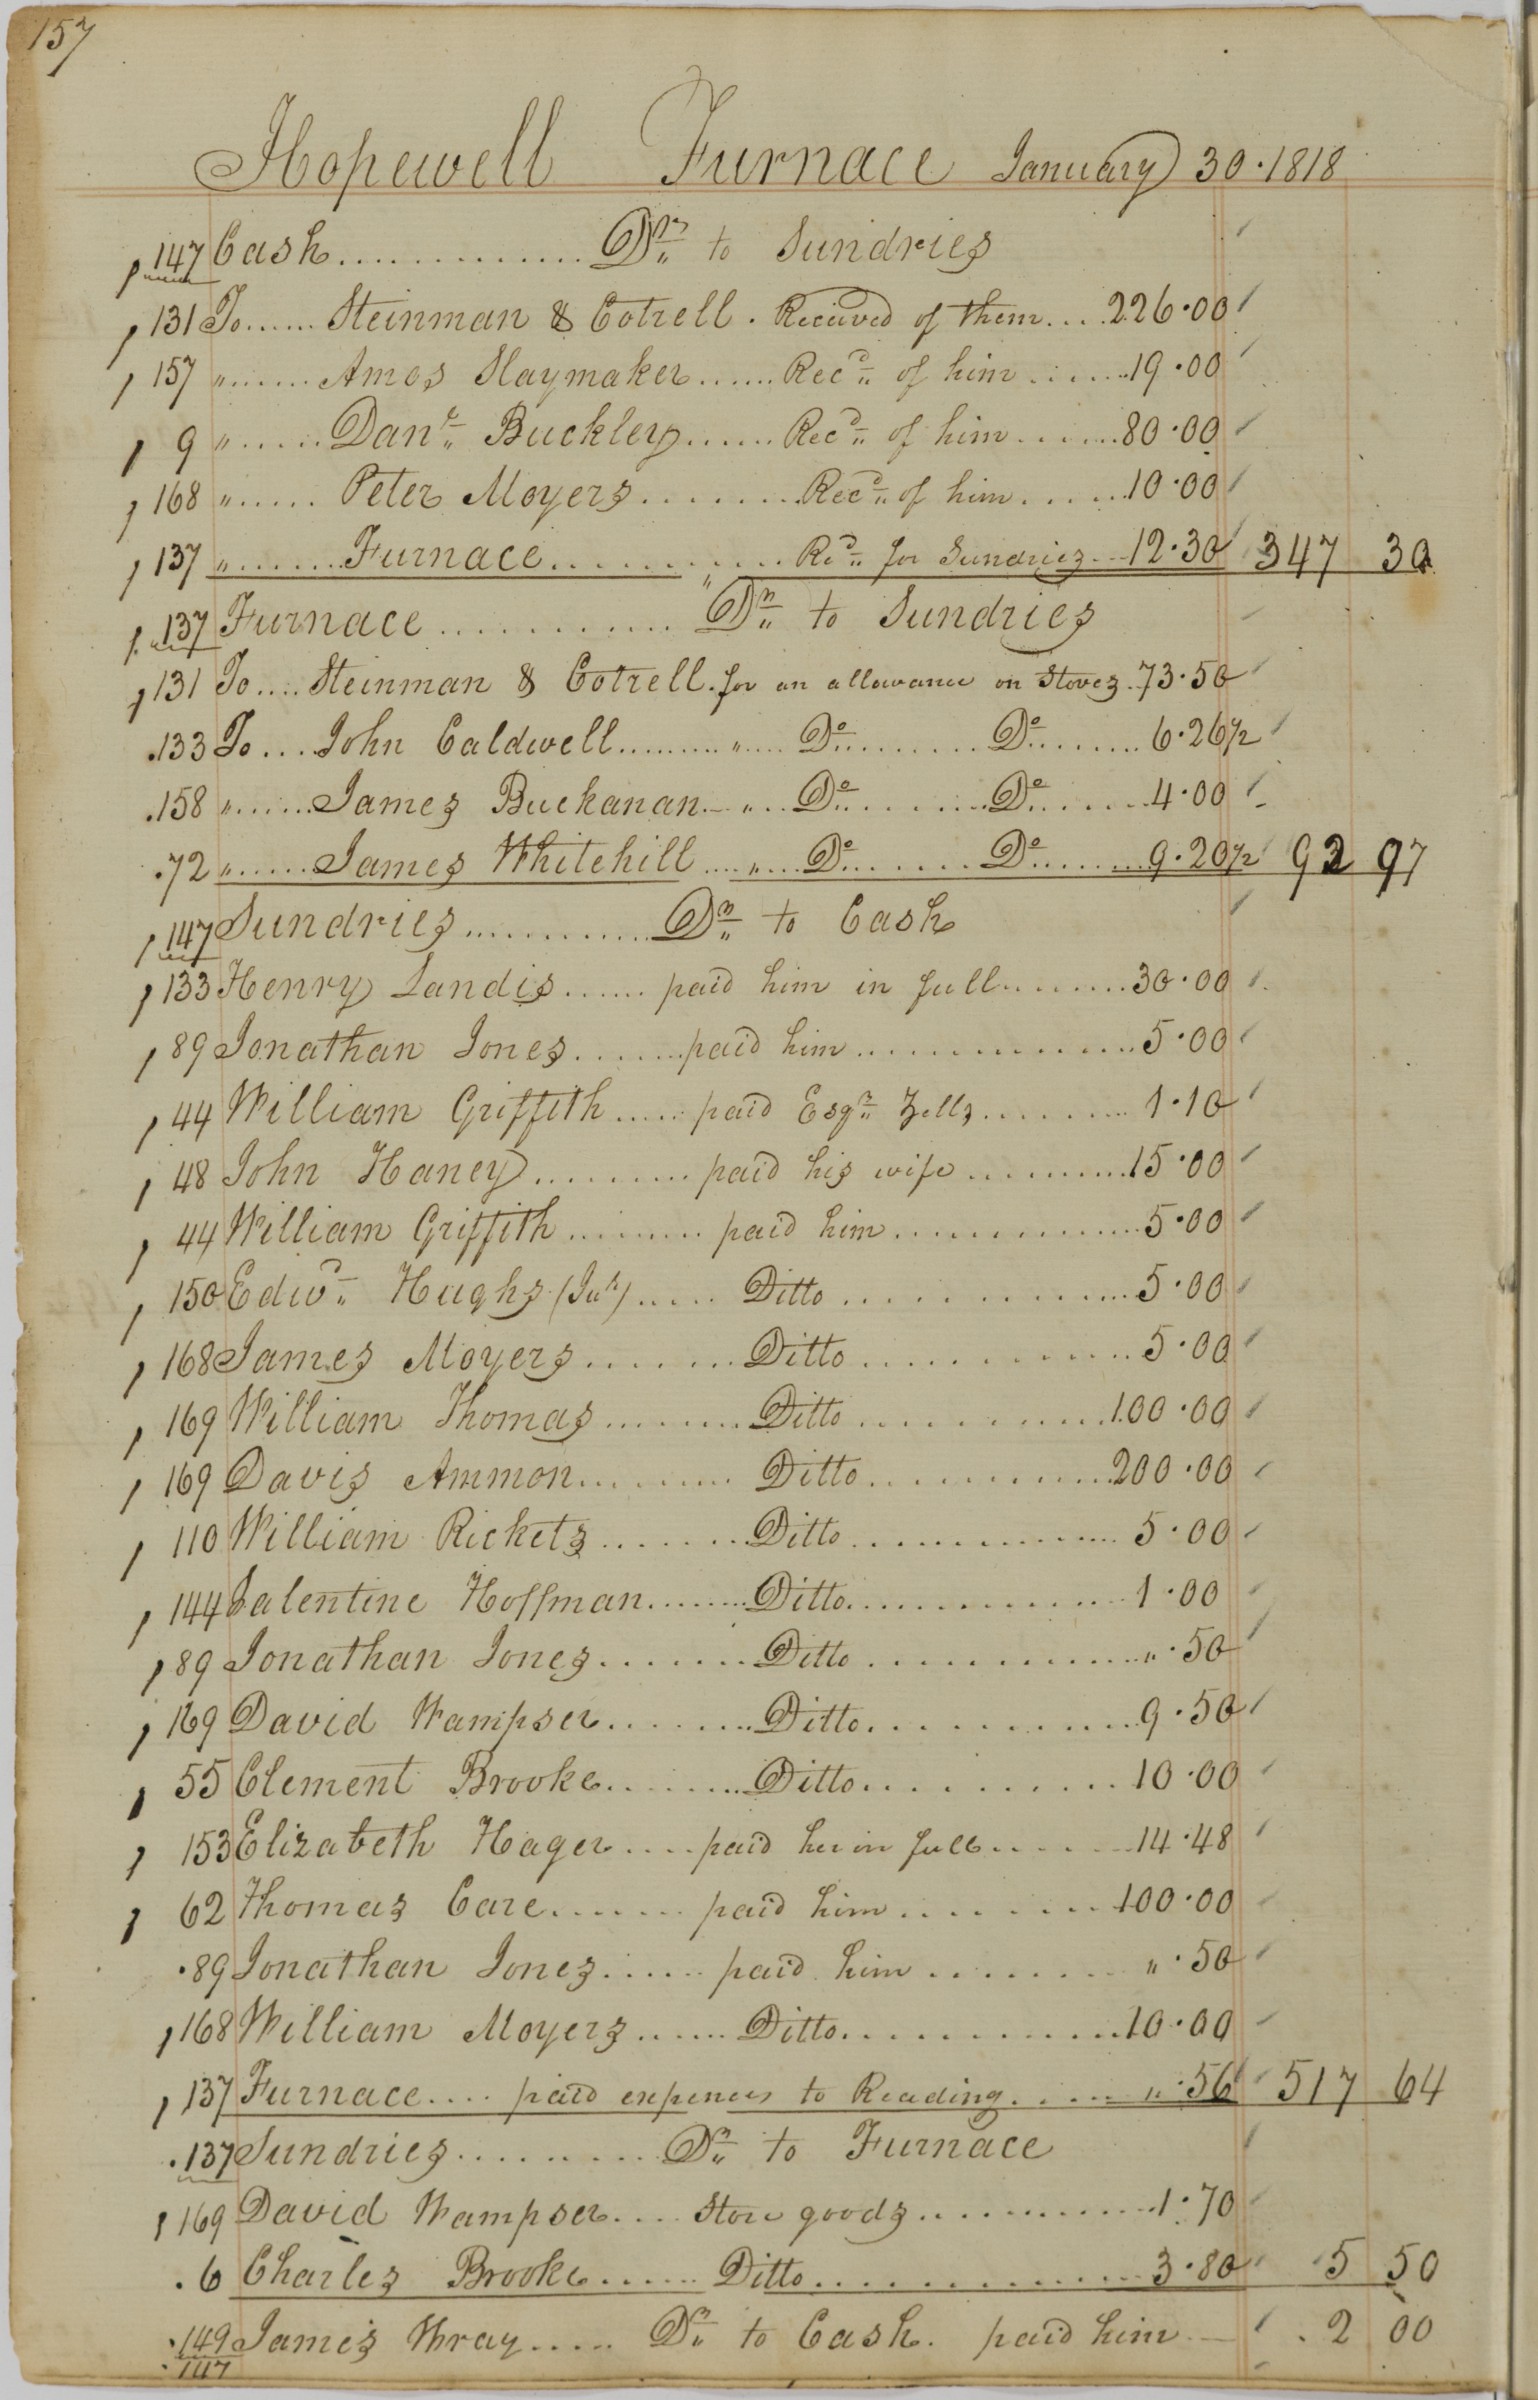 157
Hopewell Furnace January 30. 1818
147 Cash............. Dr. to Sundries
131 To...... Steinman & Cotrell. Received of them.... 226.00
157 "....... Amos Slaymaker...... Recd. of him...... 19.00
9 "...... Danl. Buckley...... Recd. of him...... 80.00
168 "...... Peter Moyers........ Recd. of him..... 10.00
137 "....... Furnace........... Recd. for Sundries... 12.30 347 30
137 Furnace............ Dr. to Sundries
131 To.... Steinman & Cotrell. for an allowance on Stoves. 73.50
133 To.... John Caldwell......... "..... Do......... Do........ 6.26 1/2
158 "...... James Buckanan.. "... Do........ Do...... 4.00
72 "...... James Whitehill.... "... Do....... Do....... 9.20 1/2 92 97
147 Sundries............ Dr. to Cash
133 Henry Landis...... paid him in full........ 30.00
89 Jonathan Jones....... paid him.............. 5.00
44 William Griffith..... paid Esqr. Zells........ 1.10
48 John Haney......... paid his wife......... 15.00
44 William Griffith......... paid him............. 5.00
150 Edwd. Hughs (Jur)..... Ditto.............. 5.00
168 James Moyers........ Ditto............. 5.00
169 William Thomas........ Ditto........... 100.00
169 Davis Ammon......... Ditto........... 200.00
110 William Rickets........ Ditto.............. 5.00
144 Valentine Hoffman....... Ditto............. 1.00
89 Jonathan Jones........ Ditto............. ".50
169 David Wampser........ Ditto............. 9.50
55 Clement Brooke........ Ditto.......... 10.00
153 Elizabeth Hager.... paid her in full...... 14.48
62 Thomas Care....... paid him......... 100.00
89 Jonathan Jones...... paid him........ ".50
168 William Moyers...... Ditto............. 10.00
137 Furnace.... paid expences to Reading..... ".56 517 64
137 Sundries......... Dr. to Furnace
169 David Wampser.... Store goods........... 1.70
6 Charles Brooke...... Ditto............... 3.80 5 50
149 James Wray..... Dr. to Cash. paid him 2 00
147